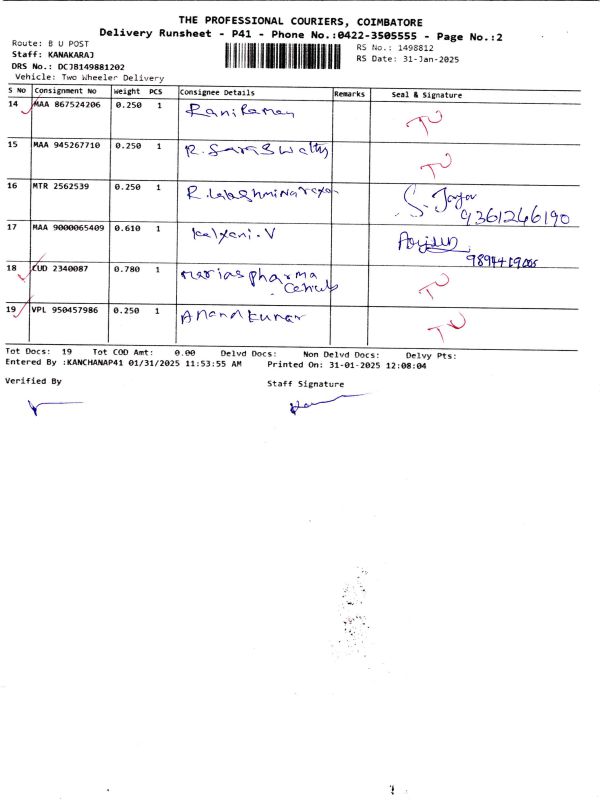 THE PROFESSIONAL COURIERS, COIMBATORE
Delivery Runsheet - P41 - Phone No.:0422-3505555 - Page No.:2
Route: B U POST
RS No.: 1498812
Staff: KANAKARAJ
RS Date: 31-Jan-2025
DRS No.: DCJB149881202
Vehicle: Two Wheeler Delivery
S No Consignment No Weight PCS Consignee Details Remarks Seal & Signature
14 MAA 867524206 0.250 1 Rani Raman TU
15 MAA 945267710 0.250 1 R. Saraswathy TU
16 MTR 2562539 0.250 1 R. Lakshminarayan S. Jaya
9361246190
17 MAA 9000065409 0.610 1 Kalyani.V Arjun
18 CUD 2340087 0.780 1 mariaspharma TU
19 VPL 950457986 0.250 1 Anand kumar TU
Tot Docs: 19 Tot COD Amt: 0.00 Delvd Docs: Non Delvd Docs: Delvy Pts:
Entered By :KANCHANAP41 01/31/2025 11:53:55 AM Printed On: 31-01-2025 12:08:04
Verified By Staff Signature